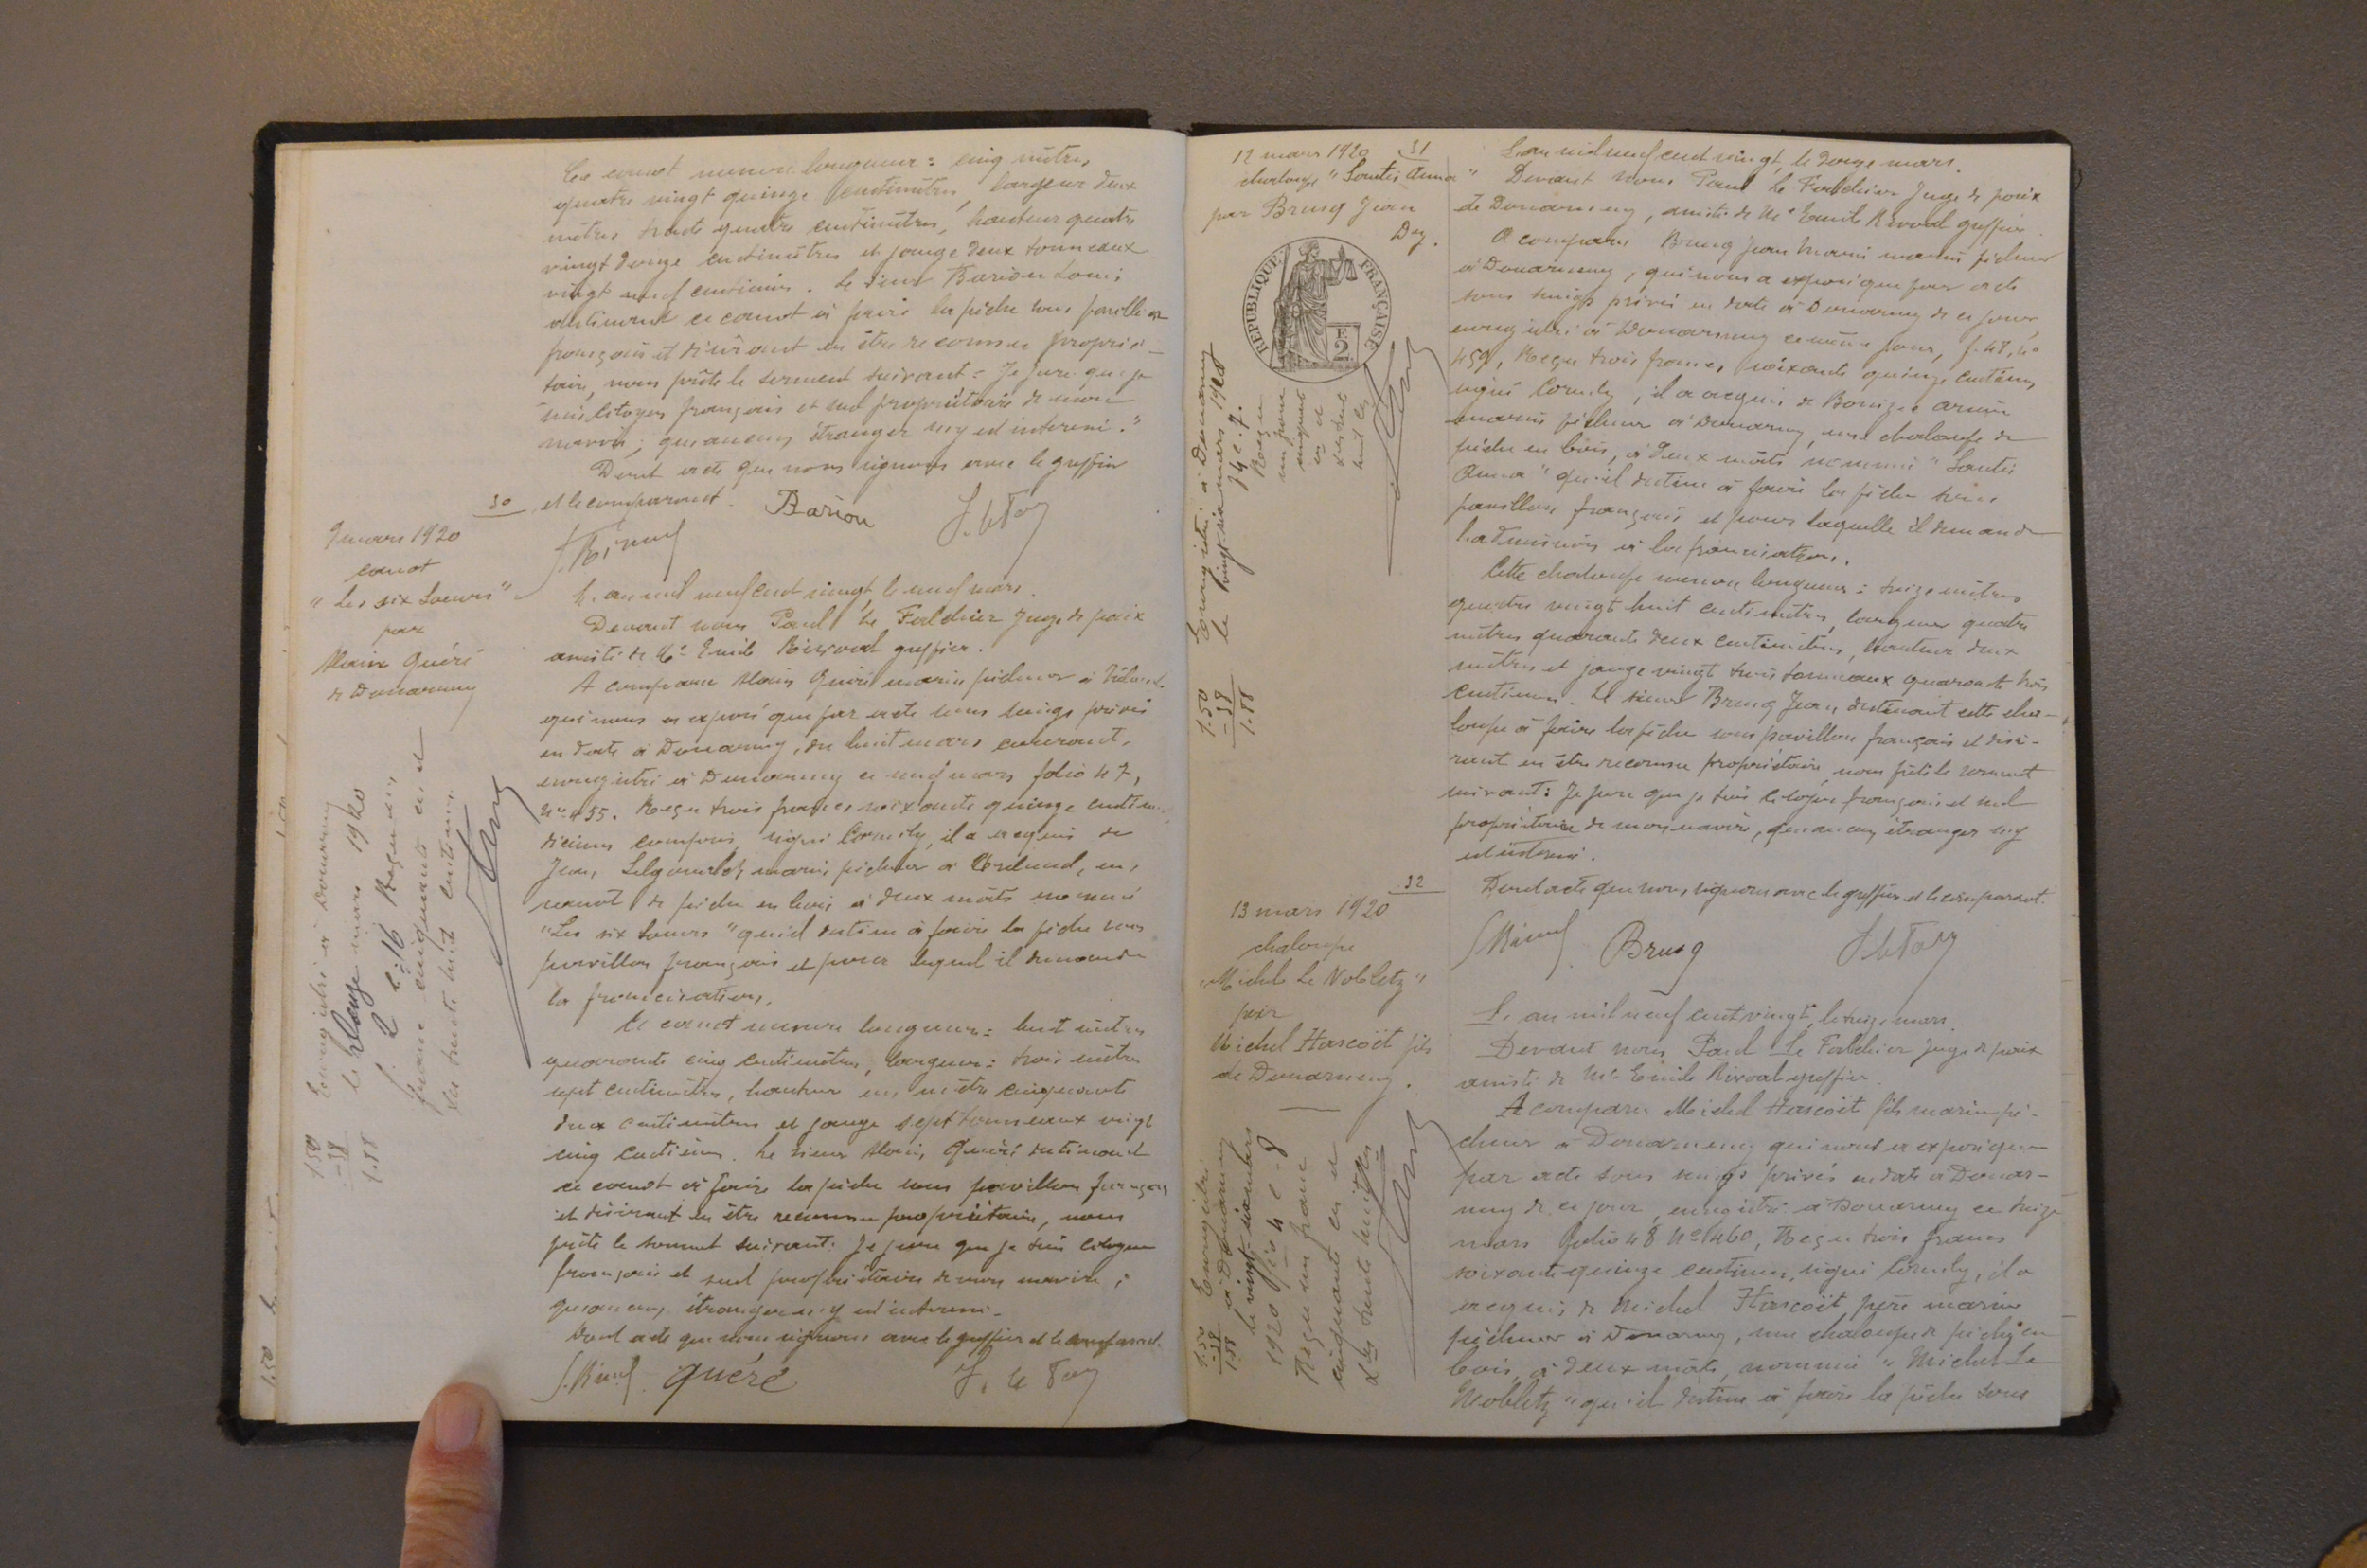 Ce canot mesure longueur : cinq mètres
quatre vingt quinze centimètres, largeur deux
mètres trente quatre centimètres, hauteur quatre
vingt douze centimètres et jauge deux tonneaux
vingt neuf centièmes. Le sieur Bariou Louis
destinant ce canot à faire la pêche sous pavillon
français et désirant en être reconnu proprié-
taire, nous prête le serment suivant : Je jure que je
suis citoyen français et seul propriétaire de mon
navire ; qu'aucun étranger n'y est intéressé."
Dont acte que nous signons avec le greffier
et le comparant.
Bariou
30
9 mars 1920
canot
"Les six Soeurs"
par
Alain Quéré
de Douarnenez
L'an mil neuf cent vingt, le neuf mars.
Devant nous Paul Le Falchier Juge de paix
assisté de Me Emile Riwoal greffier.
A comparu Alain Quéré marin pêcheur à
qui nous a exposé que par acte sous seings privés
en date à Douarnenez, du huit mars courant,
enregistré à Douarnenez ce neuf mars folio 47,
No 455. Reçu trois francs soixante quinze centimes
décimes compris, signé Cornily, il a acquis de
Jean marin pêcheur à Tréboul, un
canot de pêche en bois à deux mâts nommé
"Les six Soeurs" qu'il destine à faire la pêche sous
pavillon français et pour lequel il demande
la francisation.
Ce canot mesure longueur : huit mètres
quarante cinq centimètres, largeur : trois mètres
sept centimètres, hauteur un mètre cinquante
deux centimètres et jauge sept tonneaux vingt
cinq centièmes. Le sieur Alain Quéré destinant
ce canot à faire la pêche sous pavillon français
et désirant en être reconnu propriétaire, nous
prête le serment suivant : Je jure que je suis citoyen
français et seul propriétaire de mon navire ;
qu'aucun étranger n'y est intéressé.
Dont acte que nous signons avec le greffier et le comparant.
Quéré
Enregistré à Douarnenez
le mars 1920
f. 2 c. 16 Reçu un
franc cinquante en et
les trente huit centimes
1.50
-38
1.88
12 mars 1920
31
chaloupe "Santés Anna"
par Brusq Jean
Dez.
REPUBLIQUE FRANÇAISE
2F
Enregistré à Douarnenez
le vingt six mars 1920
f 4 c. 7.
Reçu
un franc
cinquante
en et
trente
huit ces
1.50
-38
1.88
L'an mil neuf cent vingt, le douze mars.
Devant nous Paul Le Falchier Juge de paix
de Douarnenez, assisté de Me Emile Riwoal greffier.
A comparu Brusq Jean Marie marin pêcheur
à Douarnenez, qui nous a exposé que par acte
sous seings privés en date à Douarnenez de ce jour,
enregistré à Douarnenez ce même jour, f. 47, No
459, Reçu trois francs soixante quinze centimes
signé Cornily, il a acquis de
marin pêcheur à Douarnenez, une chaloupe de
pêche en bois, à deux mâts nommée "Santés
Anna" qu'il destine à faire la pêche sous
pavillon français et pour laquelle il demande
l'admission à la francisation.
Cette chaloupe mesure longueur : treize mètres
quatre vingt huit centimètres, largeur quatre
mètres quarante deux centimètres, hauteur deux
mètres et jauge vingt trois tonneaux quarante trois
centièmes. Le sieur Brusq Jean destinant cette cha-
loupe à faire la pêche sous pavillon français et dési-
rant en être reconnu propriétaire, nous prête le serment
suivant : Je jure que je suis citoyen français et seul
propriétaire de mon navire, qu'aucun étranger n'y
est intéressé.
Dont acte que nous signons avec le greffier et le comparant.
Brusq
32
13 mars 1920
chaloupe
"Michel Le Nobletz"
par
Michel Hascoët fils
de Douarnenez.
Enregistré
à Douarnenez
le vingt-six mars
1920 fio 4 c. 8
Reçu un franc
cinquante en et
les trente huit ces
1.50
-38
1.88
L'an mil neuf cent vingt, le treize mars.
Devant nous Paul Le Falchier Juge de paix
assisté de Me Emile Riwoal greffier.
A comparu Michel Hascoët fils marin pê-
cheur à Douarnenez qui nous a exposé que
par acte sous seings privés en date à Douar-
nenez de ce jour, enregistré à Douarnenez ce treize
mars folio 48 No 460, Reçu trois francs
soixante quinze centimes, signé Cornily, il a
acquis de Michel Hascoët père marin
pêcheur à Douarnenez, une chaloupe de pêche en
bois, à deux mâts, nommée "Michel Le
Nobletz" qu'il destine à faire la pêche sous